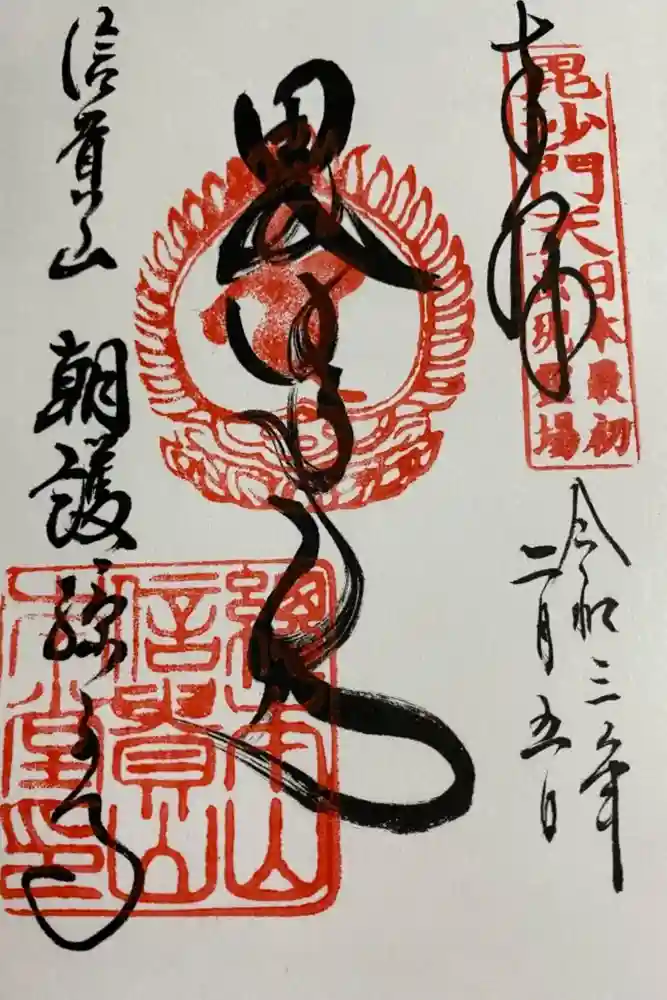 奉拝
毘沙門天日本最初
出現霊場
令和三年
二月五日
毘沙門天
信貴山 朝護孫子寺
総本山
信貴山
本堂印